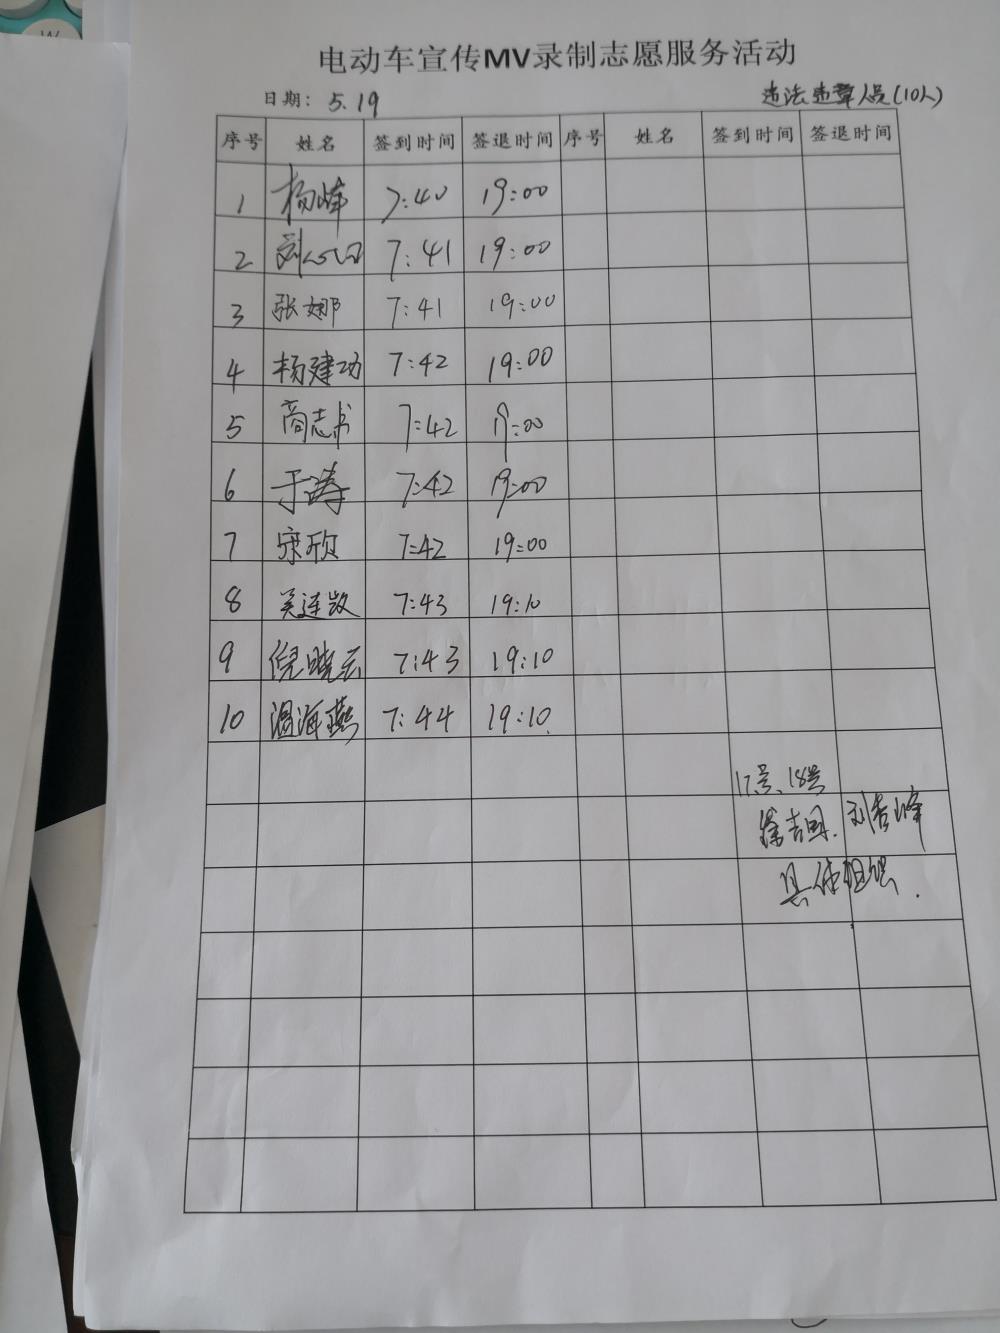 电动车宣传MV录制志愿服务活动
日期: 5.19 违法违章人员(10人)
序号 姓名 签到时间 签退时间 序号 姓名 签到时间 签退时间
1 杨峰 7:40 19:00
2 刘 7:41 19:00
3 张娜 7:41 19:00
4 杨建功 7:42 19:00
5 商志书 7:42 19:00
6 于涛 7:42 19:00
7 宋欣 7:42 19:00
8 吴连凯 7:43 19:10
9 倪晓云 7:43 19:10
10 温海燕 7:44 19:10.
17号、18号
徐吉国. 刘秀峰
具体组织.